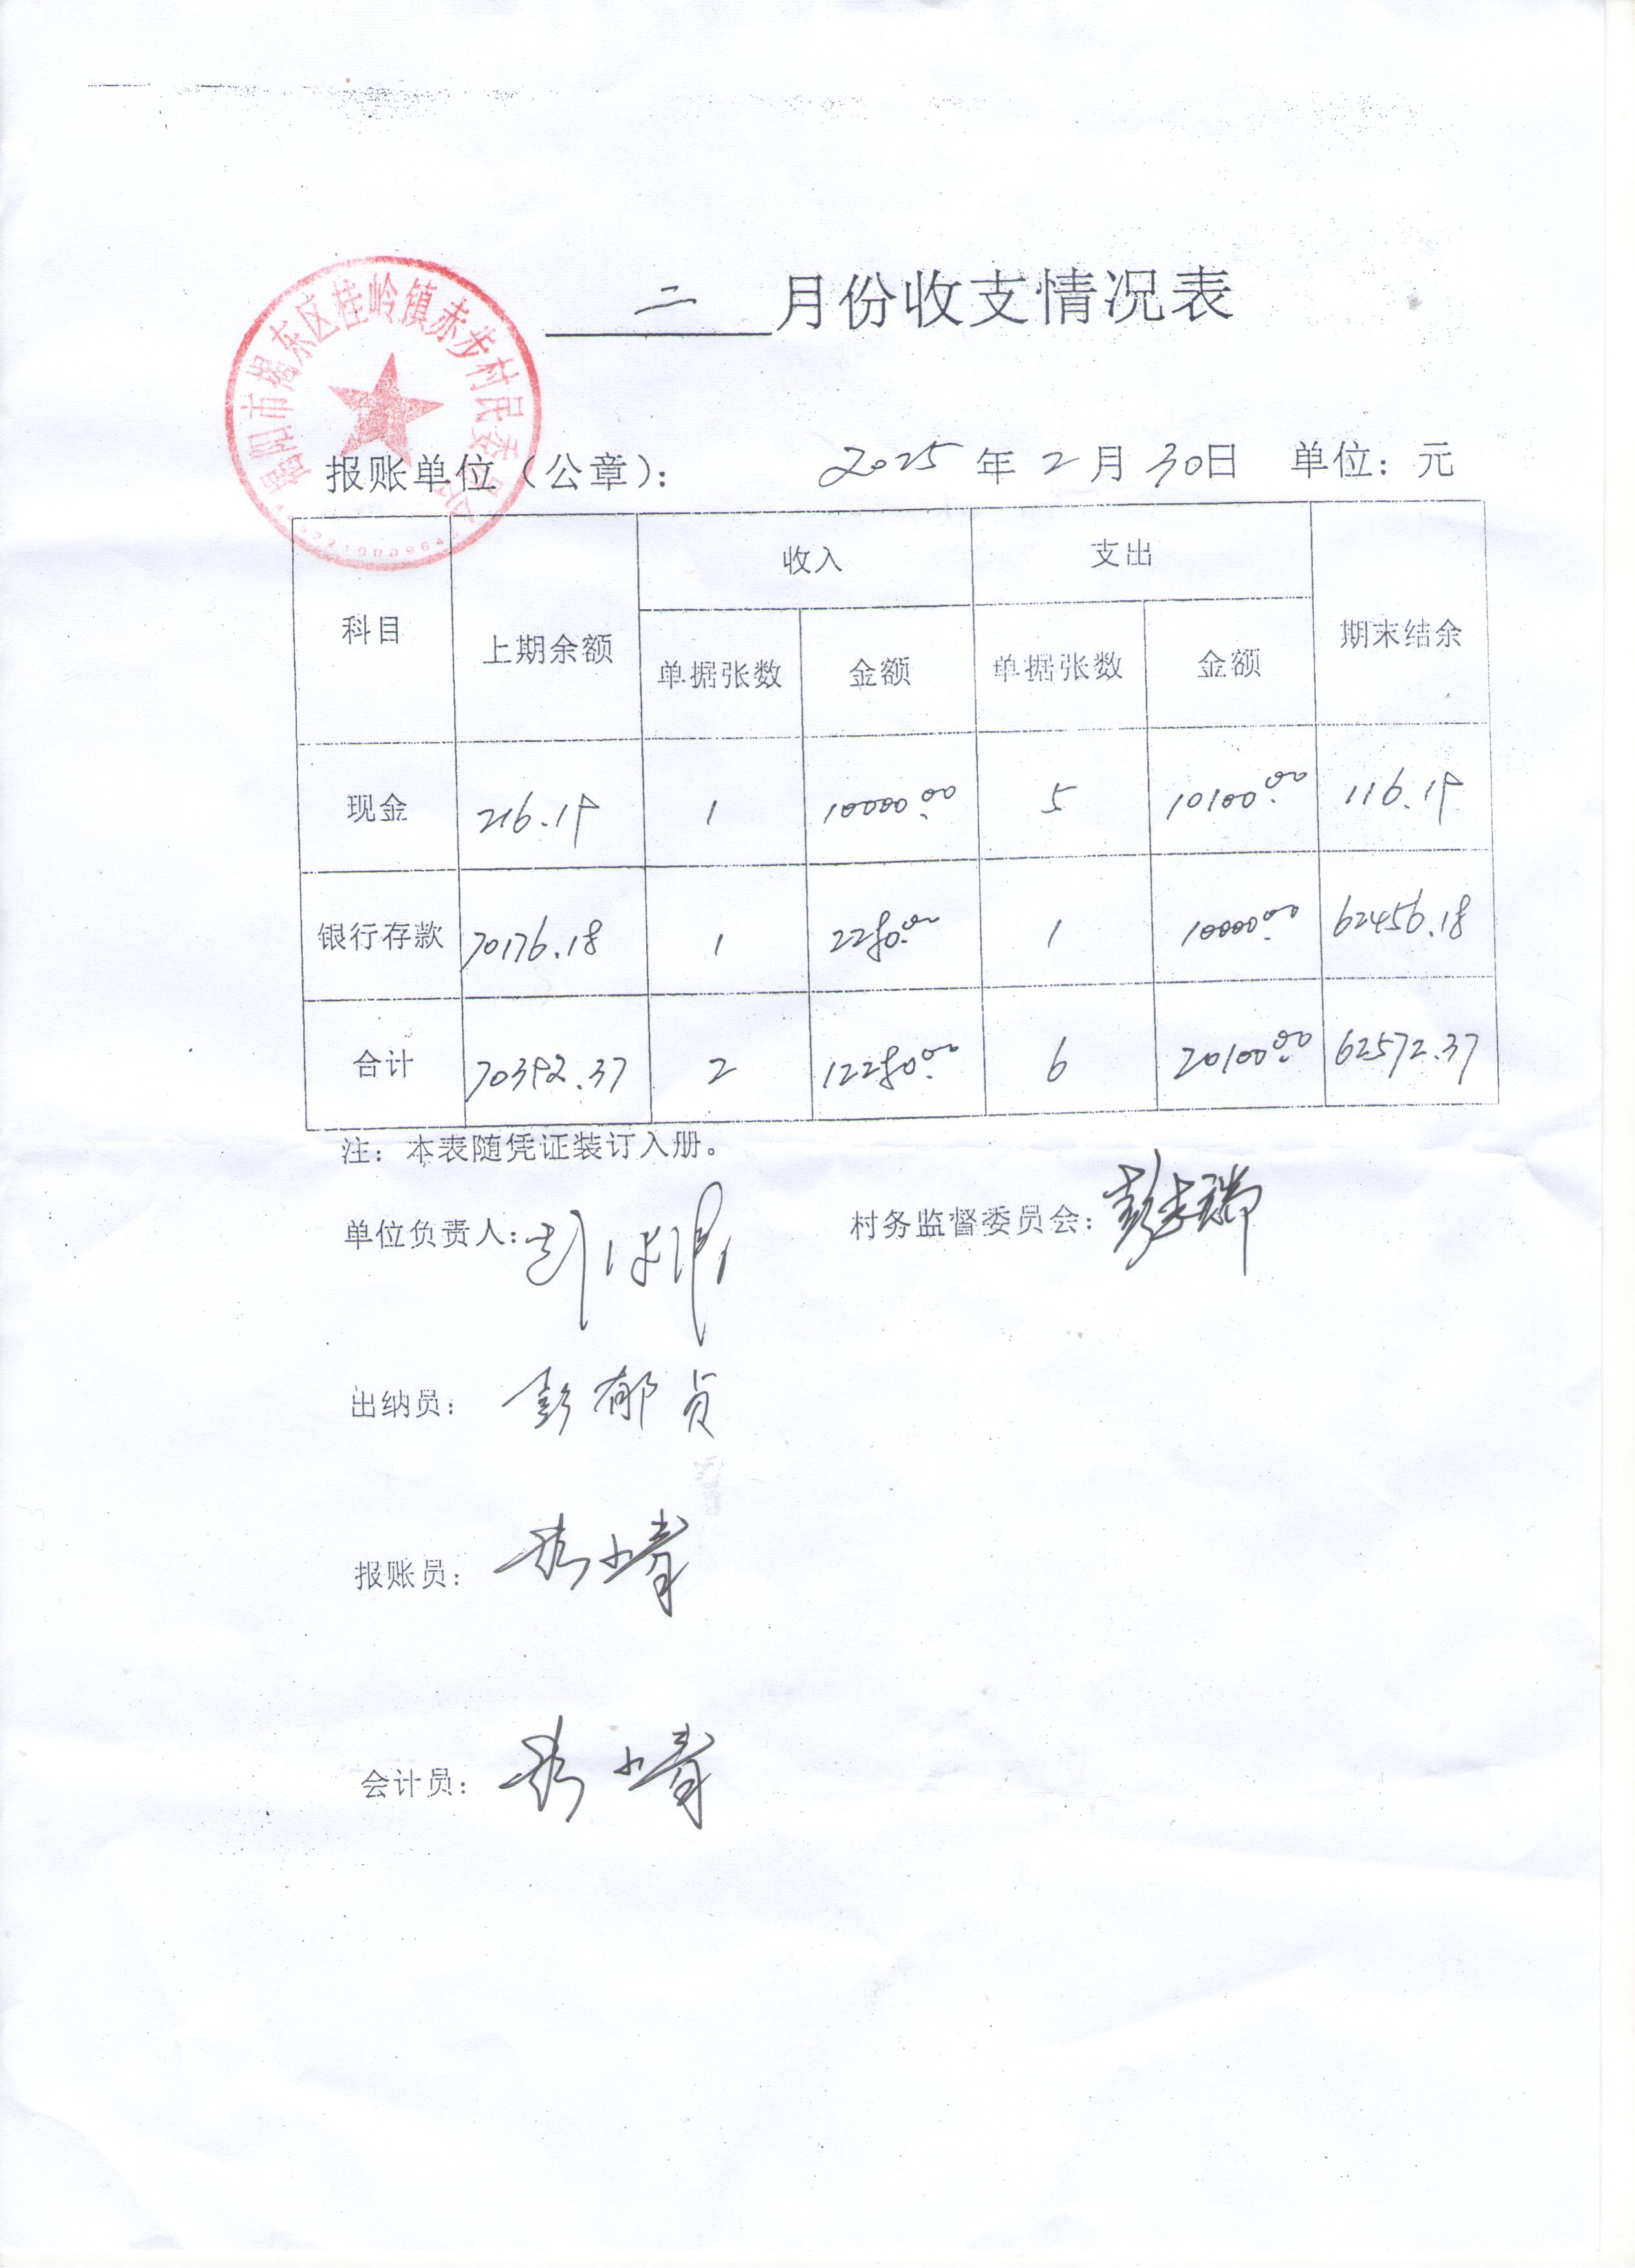 二 月份收支情况表
揭阳市揭东区桂岭镇赤步村民委员会
报账单位（公章）： 2025 年 2 月 30日 单位：元
科目 上期余额 收入 支出 期末结余
单据张数 金额 单据张数 金额
现金 216.19 1 10000.00 5 10100.00 116.19
银行存款 70176.18 1 2280.00 1 10000.00 62456.18
合计 70392.37 2 12280.00 6 20100.00 62572.37
注：本表随凭证装订入册。
单位负责人： 村务监督委员会：
出纳员： 彭郁贞
报账员：
会计员：